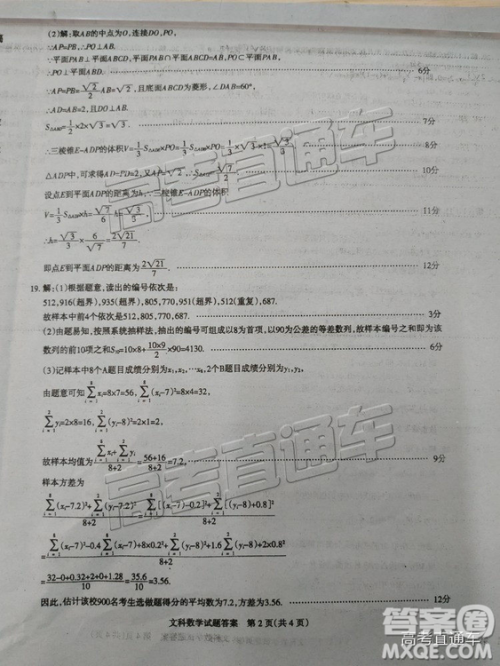 (2)解:取AB的中点为O,连接DO,PO,
∵AP=PB,∴PO⊥AB.
∵平面PAB⊥平面ABCD,平面PAB∩平面ABCD=AB,PO⊂平面PAB,
∴PO⊥平面ABD. 6分
∵AP=PB=√2/2 AB=√2,且底面ABCD为菱形,∠DAB=60°,
∴AD=AB=2,且DO⊥AB.
=1/2×2×√3=√3. 7分
∴三棱锥E-ADP的体积
△ADP中,可求得AD=PD=2,又AP=√2,
设点E到平面ADP的距离为h,∴三棱锥E-ADP的体积
11分
∴h=√3/3×6/√7=2√21/7.
即点E到平面ADP的距离为2√21/7. 12分
19.解:(1)根据题意,读出的编号依次是:
512,916(超界),935(超界),805,770,951(超界),512(重复),687.
故样本中前4个依次是512,805,770,687. 3分
(2)由题易知,按照系统抽样法,抽出的编号可组成以8为首项,以90为公差的等差数列,故样本编号之和即为该
数列的前10项之和S₁₀=10×8+10×9/2×90=4130. 6分
(3)记样本中8个A题目成绩分别为x₁,x₂,…x₈,2个B题目成绩分别为y₁,y₂,
由题意可知∑xᵢ=8×7=56,∑(xᵢ-7)²=8×4=32,
∑yᵢ=2×8=16,∑(yᵢ-8)²=2×1=2,
故样本均值为(∑xᵢ+∑yᵢ)/(8+2)=(56+16)/(8+2)=7.2, 9分
样本方差为
(∑(xᵢ-7.2)²+∑(yᵢ-7.2)²)/(8+2)=(∑[(xᵢ-7)-0.2]²+∑[(yᵢ-8)+0.8]²)/(8+2)
=(∑(xᵢ-7)²-0.4∑(xᵢ-7)+8×0.2²+∑(yᵢ-8)²+1.6∑(yᵢ-8)+2×0.8²)/(8+2)
=(32-0+0.32+2+0+1.28)/10=35.6/10=3.56.
因此,估计该校900名考生选做题得分的平均数为7.2,方差为3.56. 12分
文科数学试题答案 第2页(共4页)
高考直通车
高考直通车
高考直通车